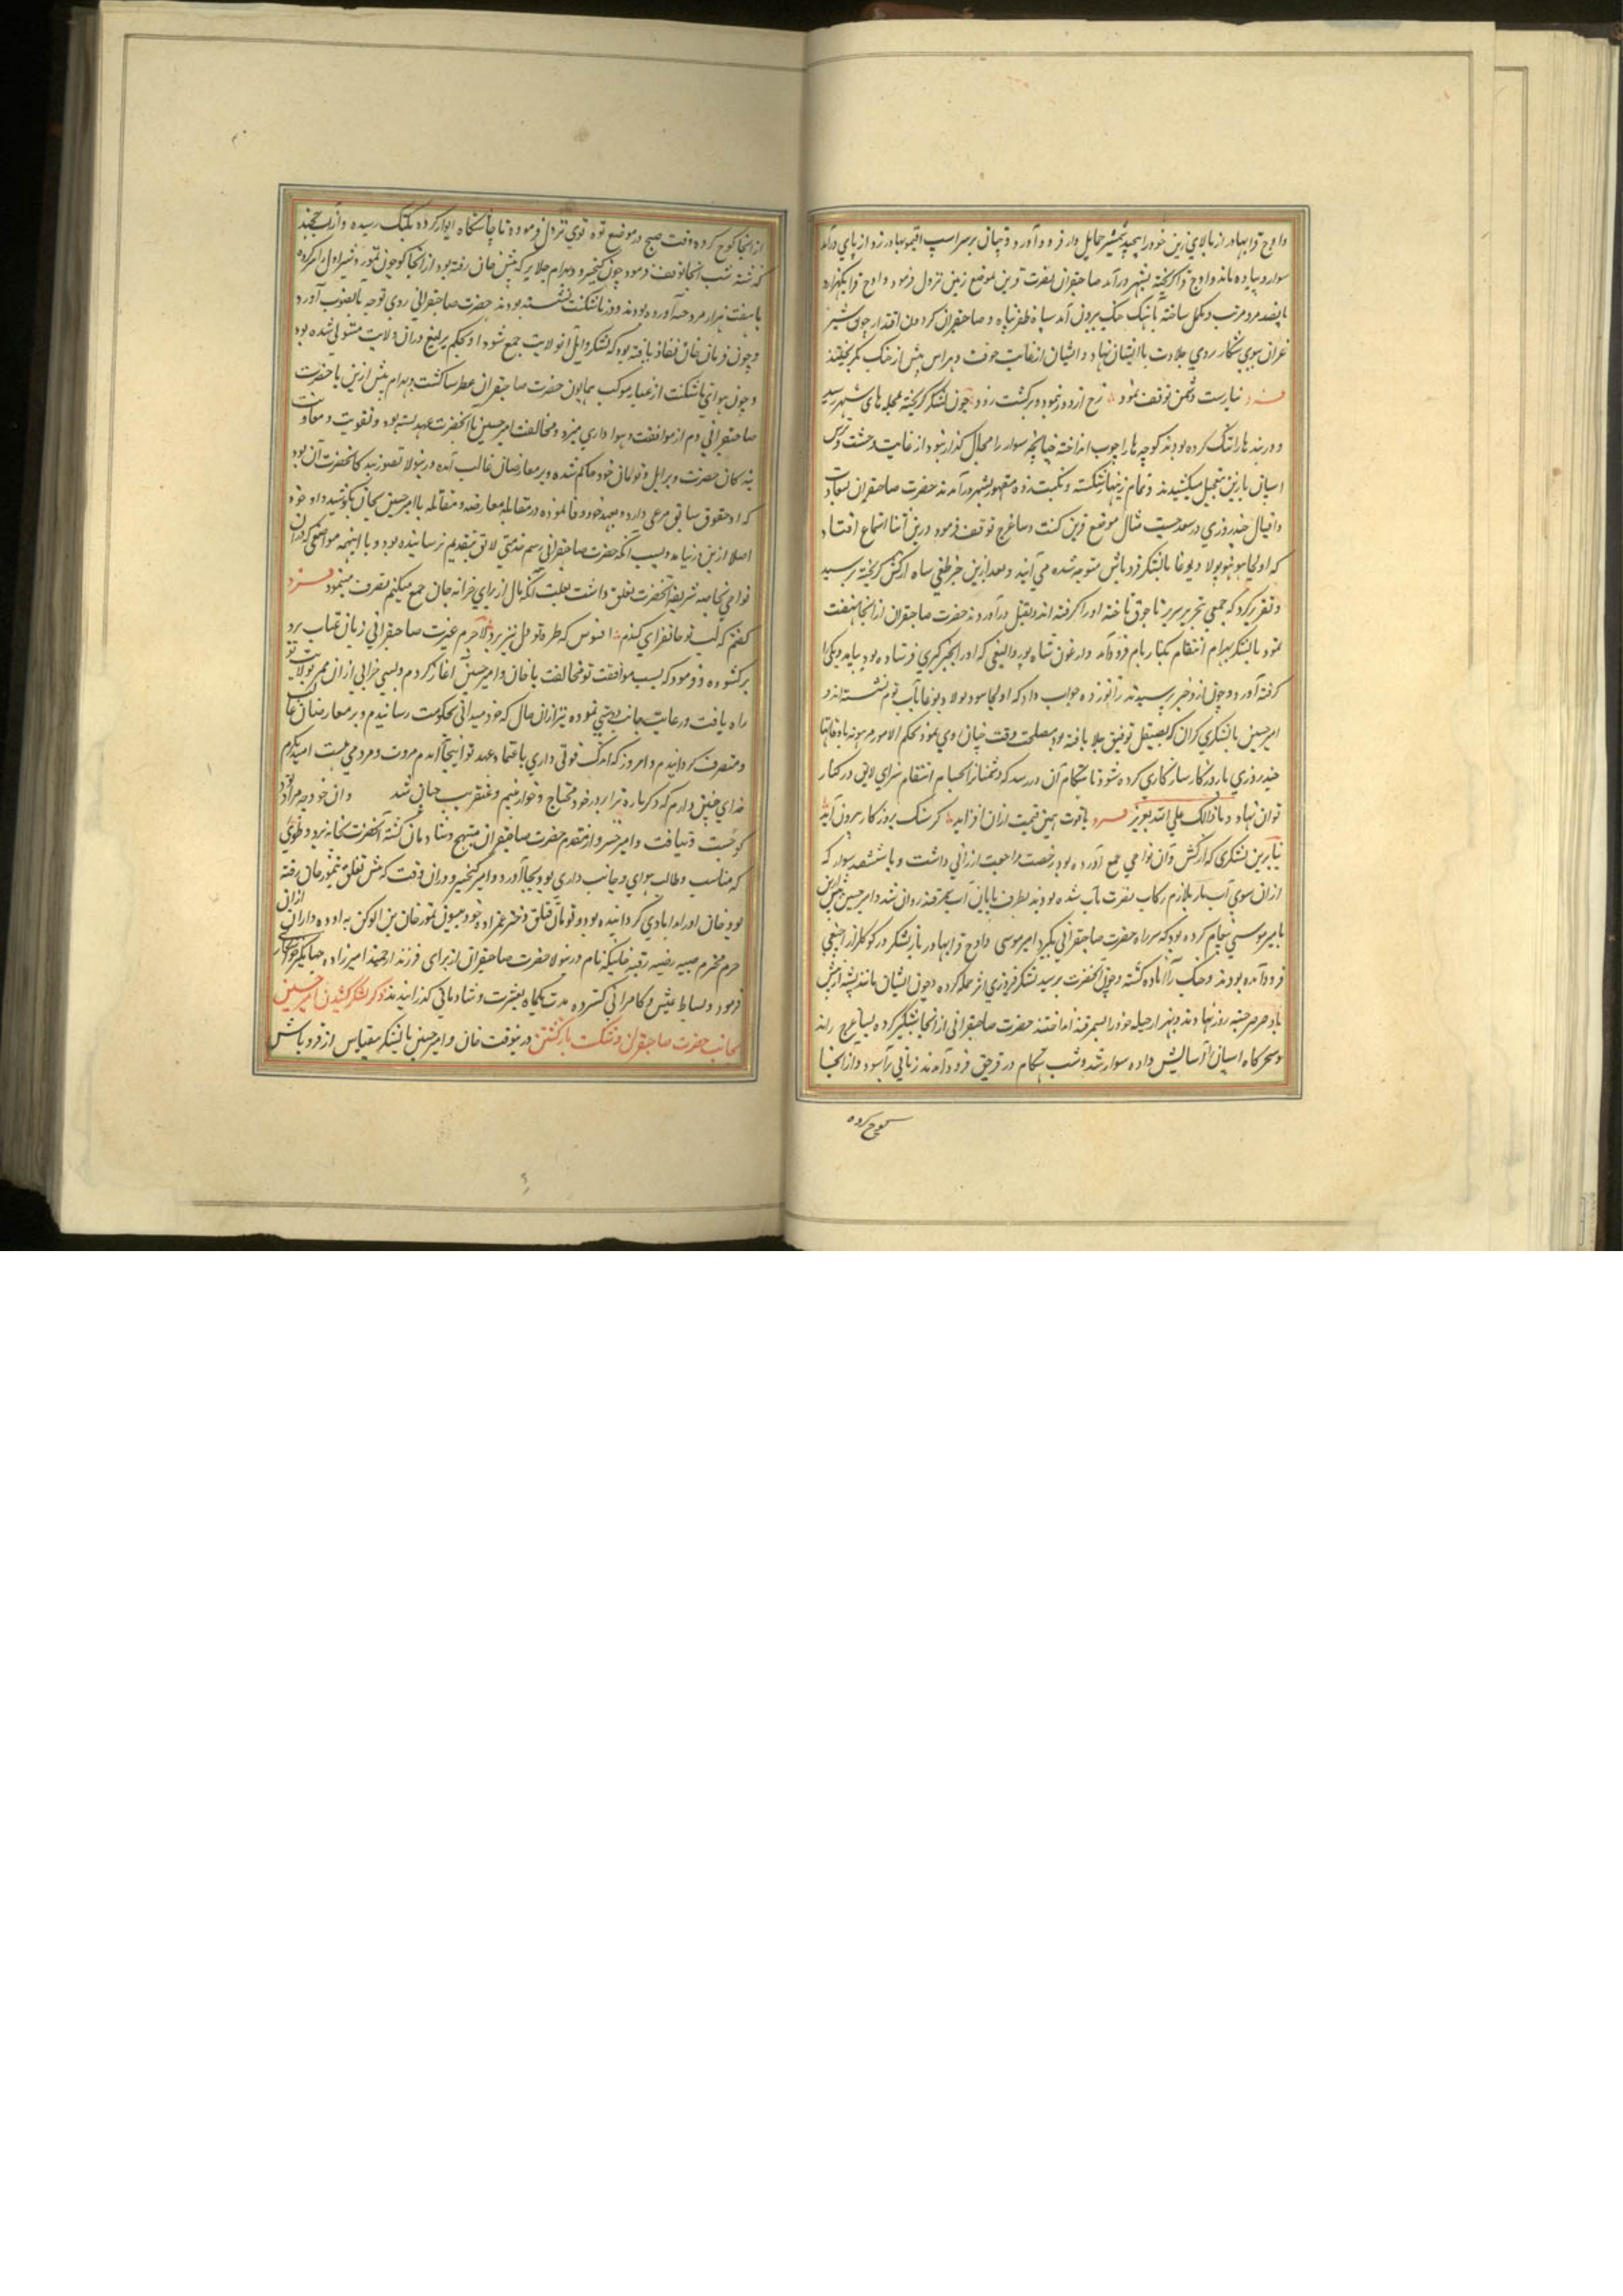 واوج قرابهادر از بالای زین خود را پیچید شمشیر حمایل وار فرود آورد و چنان بر سر اسپ اقتمور بهادر زد از پای درآمد
سوار و پیاده ماند واوج قرا گریخته بشهر درآمد صاحبقران نصرت قرین موضع زمین نزول فرمود واوج قرا
پانصد مرد مرتب و مکمل ساخته باهنگ جنگ بیرون آمد سپاه ظفرپناه و صاحبقران گردون اقتدار چون شیر
غران بسوی شکار روی جلادت با ایشان نهاد و ایشان از غایت خوف و هراس پیش از جنگ بگریختند
نیارست دشمن توقف نمود رخ از دور نمود و برگشت زود چون لشکر گریخته بمحله های شهر رسید
و دربندها را تنگ کرده بودند کوچه ها را چوب انداخته چنانچه سوار را مجال گذار نبود از غایت وحشت و ترس
اسپان با زین بتعجیل میکشیدند و تمام زینها شکسته و نکبت زده مقهور بشهر درآمدند حضرت صاحبقران بسعادت
و اقبال چند روزی در سغد موضع قرین کنت و ساغرج توقف فرمود درین اثنا استماع افتاد
که اولجا بوغا با لشکر قرد باش متوجه شده می آیند و بعد ازین خبر طغی شاه از کش گریخته برسید
و تقریر کرد که جمعی تاخته او را گرفته اند و بقتل درآوردند حضرت صاحبقران از انجا نهضت
نمود با لشکر بهرام انتقام بکنار یام فرود آمد و ارغون شاه بوردالیغی که او را بخبرگیری فرستاده بود بیامد و یکی را
گرفته آورد و چون ازو خبر پرسیدند زانو زده جواب داد که پولاد بوغا تا آب قوم نشسته اند و
امیر حسین با لشکری گران که بصیقل توفیق جلا یافته بود مصلحت وقت چنان روی نمود بحکم الامور مرهونة باوقاتها
چند روزی با روزگار سازگاری کرده شود تا هنگام آن در رسد که دشمنان را بحسام انتقام سزای لایق در کنار
توان نهاد و ما ذالک علی الله بعزیز فرد یاقوت همین قیمت ازان افزاید کز سنگ بروزگار بیرون آید
بنابرین لشکری که از کش و آن نواحی جمع آورده بود رخصت مراجعت ارزانی داشت و با ششصد سوار که
ازان سوی آب باز ملازم رکاب نصرت مآب شده بودند بطرف پایان آب سمرقند روان شد و امیر حسین پیش ازین
بامیر موسی پیغام کرده بود که سر راه حضرت صاحبقرانی بگیرد امیر موسی واوج قرابهادر با لشکر در کوکلزار
فرود آمده بودند و جنگ را آماده گشته و چون آنحضرت برسید لشکر فیروزی اثر حمله کرده و چون ایشان مانند پشه از پیش
باد صرصر بهزیمت روی نهادند و بهزار حیله خود را بسمرقند انداختند حضرت صاحبقرانی از انجا شبگیر کرده بساغرج راند
و سحرگاه اسپان را آسایش داده سوار شد و شب هنگام در قرجق فرود آمدند زمانی برآسود و از انجا
کوچ کرده
از انجا کوچ کرده وقت صبح در موضع توه توی نزول فرموده تا چاشتگاه ایوار کرده رسیده و از آب خجند
گذشته شب انجا توقف فرمود چون کیخسرو و بهرام جلایر که پیش خان رفته بود از انجا کوچون تمور و شیراول را همراه
با هفت هزار مرد جته آورده بودند و در تاشکنت نشسته بودند حضرت صاحبقرانی روی توجه بآنصوب آورد
و چون فرمان خان نفاذ یافته بود که لشکر و ایل آن ولایت جمع شود او بحکم یرلیغ دران ولایت مستولی شده بود
و چون هوای تاشکنت از غبار موکب همایون حضرت صاحبقران عطرسا گشت و بهرام پیش ازین با حضرت
صاحبقرانی دم از موافقت و هواداری میزد و مخالفت امیر حسین با آنحضرت عهد بسته بود و تقویت و معاونت
بندگان حضرت و بر ایل و تومان خود حاکم شده و بر معارضان غالب آمده درینولا تصور بندگانحضرت آن بود
که او حقوق سابق مرعی دارد و بعهد خود وفا نموده در مقابله معارضه و مقاتله با امیر حسین بجان بکوشید و او خود
اصلا ازین در نیامد و بسبب آنکه حضرت صاحبقرانی رسم خدمتی لایق بتقدیم نرسانیده بود و با اینهمه مواضعی که دران
نواحی بخاصه شریفه آنحضرت تعلق داشت بعلت آنکه مال از برای خزانه خان جمع میکنم تصرف مینمود فرد
گفتم که لب تو جانفزای کندم افسوس که طره تو دل نیز ببرد لاجرم غیرت صاحبقرانی زبان عتاب برو
برگشوده و فرمود که بسبب موافقت تو مخالفت با خان و امیر حسین آغاز کردم و بسی خرابی از ان ممر بولایت تو
راه یافت و رعایت جانب دوستی نموده نیز ازان مال که خود میدانی بحکومت رسانیدم و بر معارضان غالب
و متصرف گردانیدم و امروز که اندک قوتی داری باعتماد عهد تو اینجا آمدم مروت و مردمی نیست امیدوارم
خدای چنین دارم که دگرباره ترا بر در خود محتاج و خوار بینم و عنقریب چنان شد وان خود چه مراد بود
کو جست و نیافت و امیر خسرو از مقدم حضرت صاحبقران مبتهج و شادمان گشته آنحضرت بخانه برد و طوی
که مناسب و طالب هوای و جانب داری بود بجا آورد و امیر کیخسرو دران وقت که پیش تغلق تیمور خان رفته
بود خان او را دامادی گردانیده بود و تومان قتلق دختر عمزاده خود میسون تمور خان بن الوکن به او داده و ازان
حرم محترم صبیه رضیه رقیه خانیکه نام درینولا حضرت صاحبقران از برای فرزند ارجمند امیرزاده جهانگیر خواستگاری
فرمود و بساط عیش و کامرانی گسترده مدت یکماه بعشرت و شادمانی گذرانیدند ذکر لشکر کشیدن امیر حسین
بجانب حضرت صاحبقران و شکست بازگشتن درینوقت خان و امیر حسین با لشکر بیقیاس از قرد باش